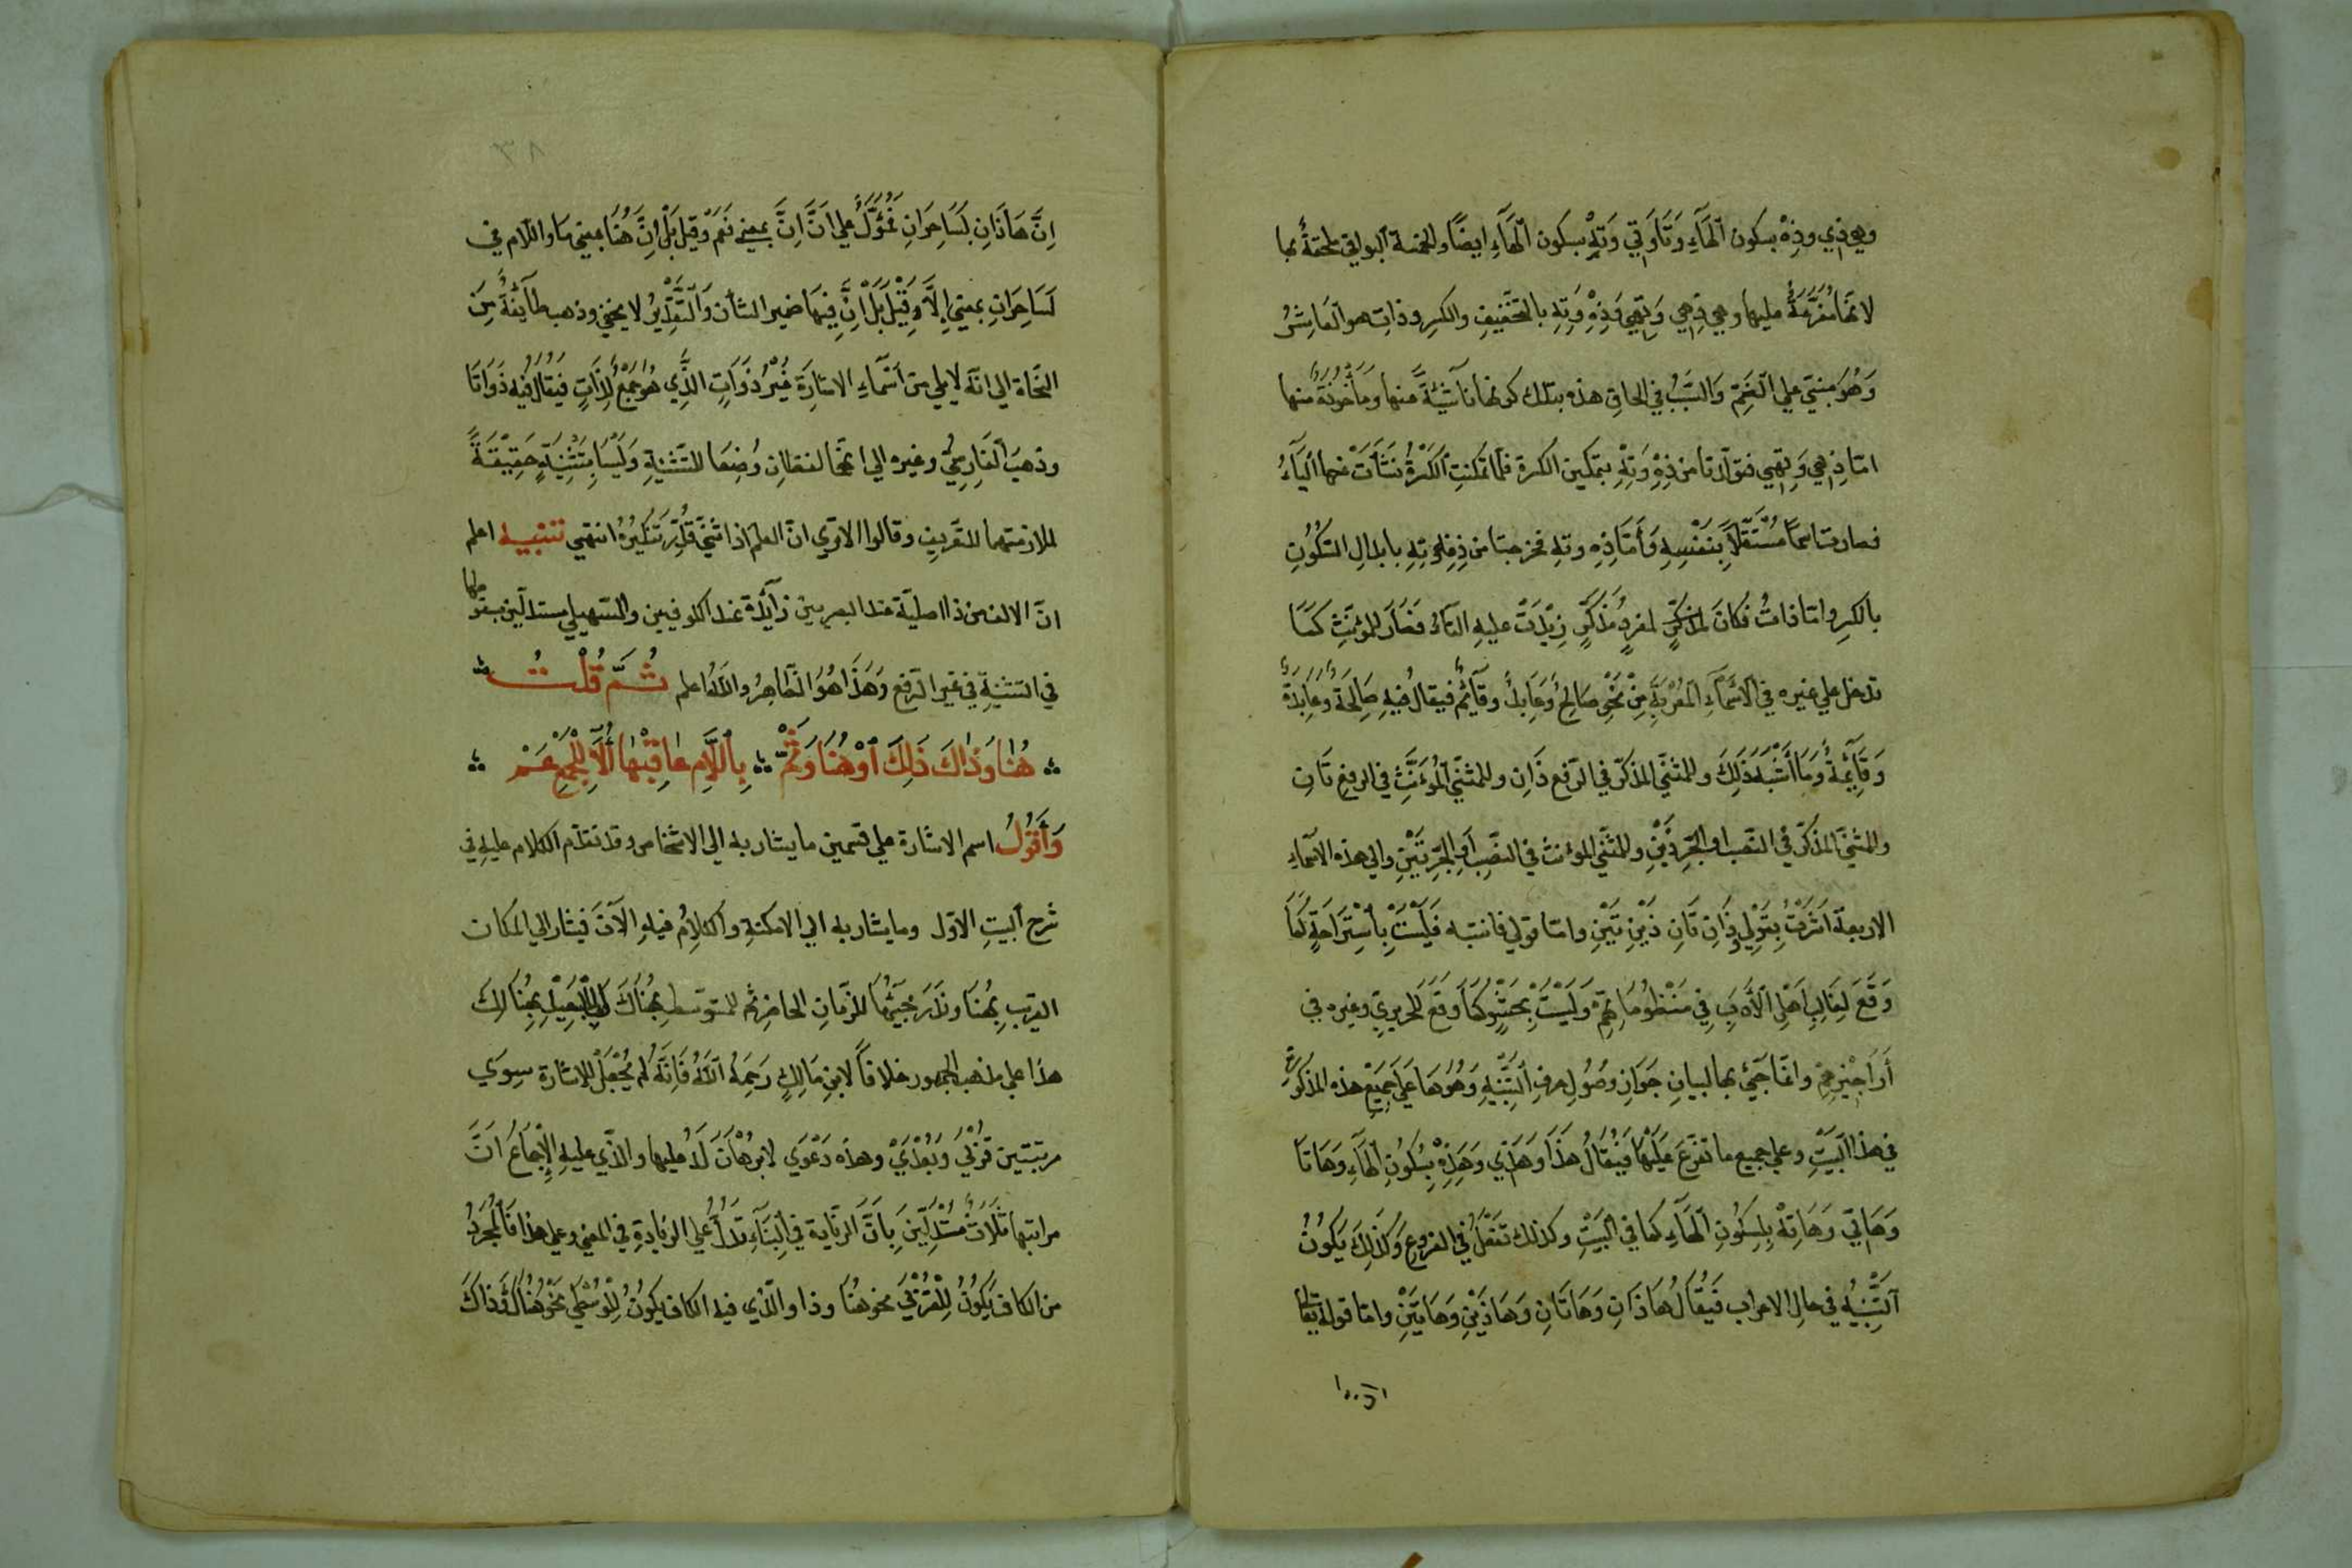 وهي ذي وذه بسكون الهاء وتا وتي وته بسكون الهاء ايضا والخمسة البواقي ملحقة بها
لانها مفرعة عليها وهي ذهي وتهي وذه وته بالتخفيف والكسر وذات هو العاشر
وهو مبني علي الضم والسبب في الحاق هذه بتلك كونها ناشئة عنها وماخوذة منها
امّا ذهي وتهي فتولّدتا من ذه وته بتمكين الكسرة فلما تمكنت الكسرة نشأت عنها الياء
فصارتا اسما مستقلا بنفسه وأمّا ذه وته فخرجتا من ذه وته بابدال السكون
بالكسر وامّا ذات فكان لمذكر لمفرد مذكر زيدت عليه التاء فصار للمؤنث كما
تدخل علي غيره في الاسماء المعربة من نحو صالح وعابد وقائم فيقال فيه صالحة وعابدة
وقائمة وما أشبه ذلك وللمثنّي المذكّر في الرفع ذان وللمثنّي المؤنث في الرفع تان
وللمثنّي المذكّر في النصب او الجرّ ذين وللمثنّي المؤنث في النصب او الجرّ تين والي هذه الاسماء
الاربعة اشرت بقولي وذان تان ذين تين وامّا قولي فانتبه فليست باستراحة كما
وقع لغالب اهل الادب في منظوماتهم وليست بحشو كما وقع للحريري وغيره في
أراجيزهم وانما جيئ بها لبيان جواز وصول حرف التنبيه وهو ها علي جميع هذه المذكورة
في هذا البيت وعلي جميع ما تفرع عليها فيقال هذا وهذي وهذه بسكون الهاء وهاتا
وهاتي وهاته بسكون الهاء كما في البيت وكذلك تفعل في الفروع وكذلك يكون
التنبيه في حال الاعراب فيقال هاذان وهاتان وهاذين وهاتين وامّا قوله تعالي
٣٨
انّ هاذان لساحران فمؤوّل علي انّ انّ بمعني نعم وقيل بل انّ هنا بمعني ما واللام في
لساحران بمعني إلّا وقيل بل انّ فيها ضمير الشأن والتقدير لا يخفي وذهب طائفة من
النحاة الي انّه لا يلي من أسماء الاشارة غير ذوات الذي هو جمع لذات فيقال فيه ذواتا
وذهب الفارسي وغيره الي انّهما لفظان وضعا للتثنية وليسا بتثنية حقيقة
لملازمتهما للتعريف وقالوا الا تري انّ العلم اذا ثنّي قدّر تنكيره انتهي تنبيه اعلم
انّ الالف من ذا اصليّة عند البصريين زائدة عند الكوفيين والسهيلي مستدلّين بسقوطها
في التثنية في غير الرفع وهذا هو الظاهر والله اعلم ثمّ قلت
هنا وذاك ذلك أو هنا وثمّ باللام عاقبها ألا للجمع عم
وأقول اسم الاشارة علي قسمين ما يشار به الي الاشخاص وقد تقدّم الكلام عليه في
شرح البيت الاوّل وما يشار به الي الامكنة والكلام فيه الآن فيشار الي المكان
القريب بهنا وندر مجيئها للزّمان الحاضر ثم للمتوسط بهناك وللبعيد بهنالك
هذا علي مذهب الجمهور خلافا لابن مالك رحمه الله فانّه لم يجعل للاشارة سوي
مرتبتين قربي وبعدي وهذه دعوي لا برهان له عليها والذي عليه الإجماع انّ
مراتبها ثلاث مستدلين بانّ الزّيادة في البناء تدلّ علي الزيادة في المعني وعلي هذا فالمجرد
من الكاف يكون للقربي نحو هنا وذا والذي فيه الكاف يكون للوسطي نحو هناك وذاك